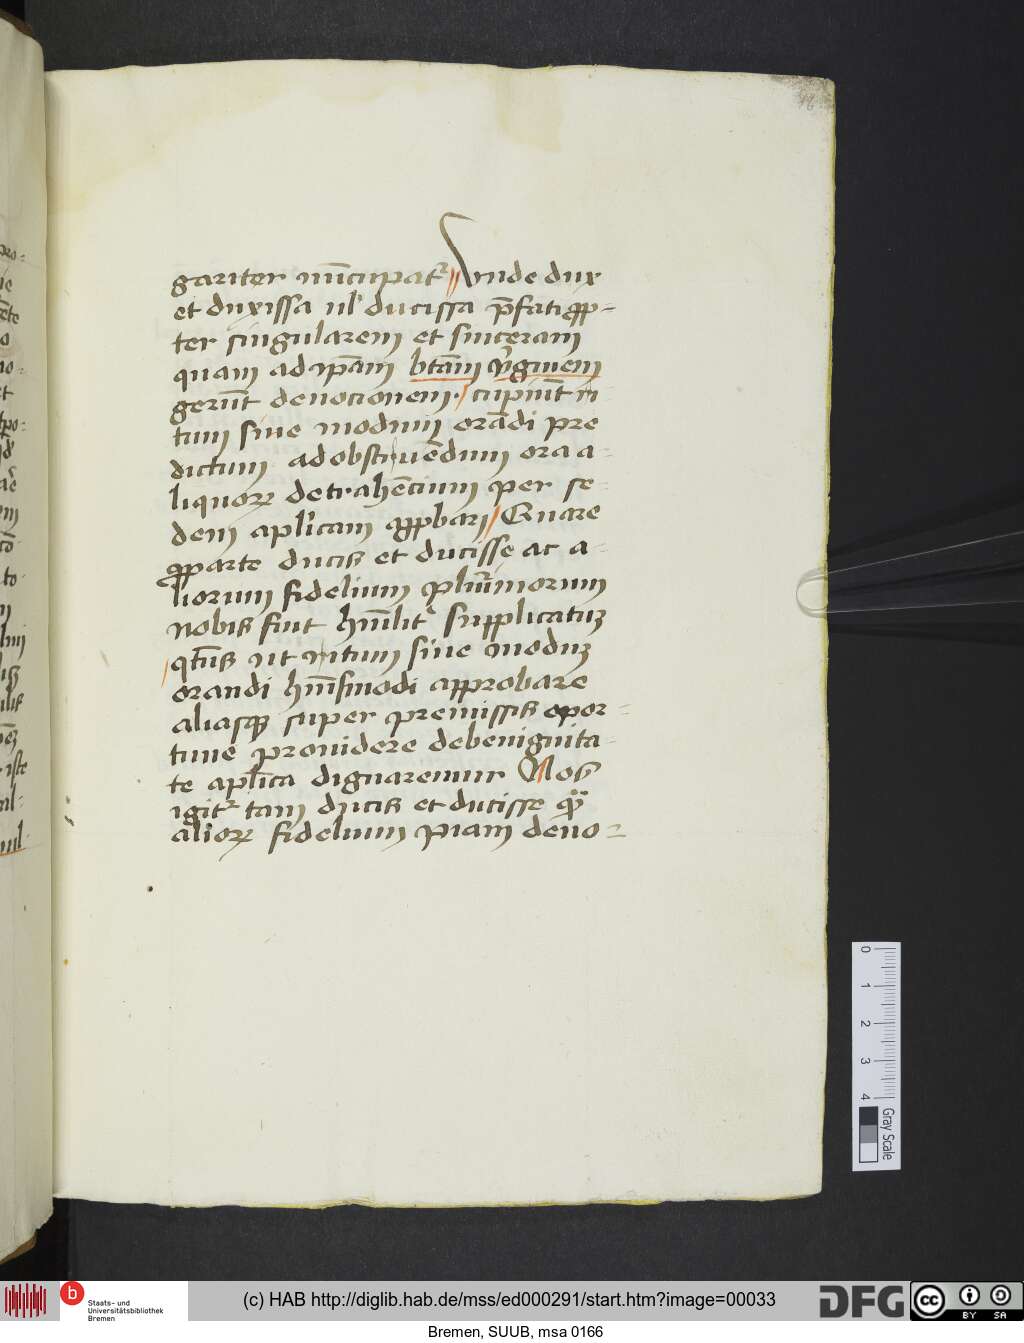 gariter nu̅cupatr̉ // Unde dux
et duxissa ul' ducissa p̅fati ꝓp-
ter singularem et sinceram
quam ad ip̅am bta̅m v̉ginem
geru̅t deuocionem · / cupiu̅t ri
tum siue modum ora̅di pre
dictum ad obstrue̅dum ora a-
liquoꝝ detrahe̅cium per se-
dem aplicam aꝓpbari // Quare
ꝓ parte ducis et ducisse ac a-
liorum fidelium plu̅rimorum
nobis fuit hu̅ilit̉ supplicatuꝫ
qt̅us ut ritum siue moduꝫ
orandi hu̅smodi approbare
aliasqꝫ super premissis opor-
tune prouidere de benignita
te aplica dignaremur Nos
igit̉ tam ducis et ducisse qꝫ
alioꝝ fidelium piam deuo-
98
0 1 2 3 4
Gray Scale
b Staats- und
Universitätsbibliothek
Bremen
(c) HAB http://diglib.hab.de/mss/ed000291/start.htm?image=00033
DFG
cc BY SA
Bremen, SUUB, msa 0166